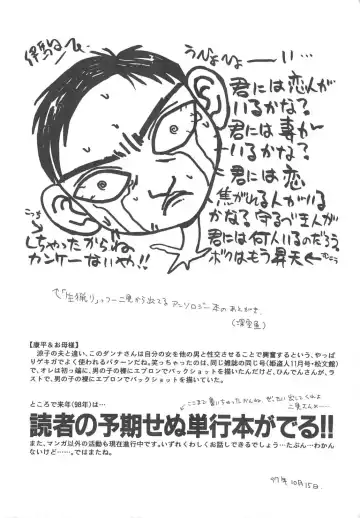 うひょひょーーい…
君には恋人が
いるかな?
君には妻が
いるかな?
君には恋
焦がれる人がいる
かな?守るべき主人が
君には何人いるのだろう
ボクはもう昇天
しちゃったからね
カンケーないや!!
【康平&お母様】
涼子の夫と違い、このダンナさんは自分の女を他の男と性交させることで興奮するという、やっぱ
りゲキガでよく使われるパターンだね。笑っちゃったのは、同じ雑誌の同じ号(姫盗人11月号・松文館)
で、オレは初っ端に、男の子の裸にエプロンでバックショットを描いたんだけど、ひんでんさんが、ラ
ストで、男の子の裸にエプロンでバックショットを描いていた。
ところで来年(98年)は…
読者の予期せぬ単行本がでる!!
また、マンガ以外の活動も現在進行中です。いずれくわしくお話しできるでしょう…たぶん…わかん
ないけど……。ではまたね。
97年10月15日